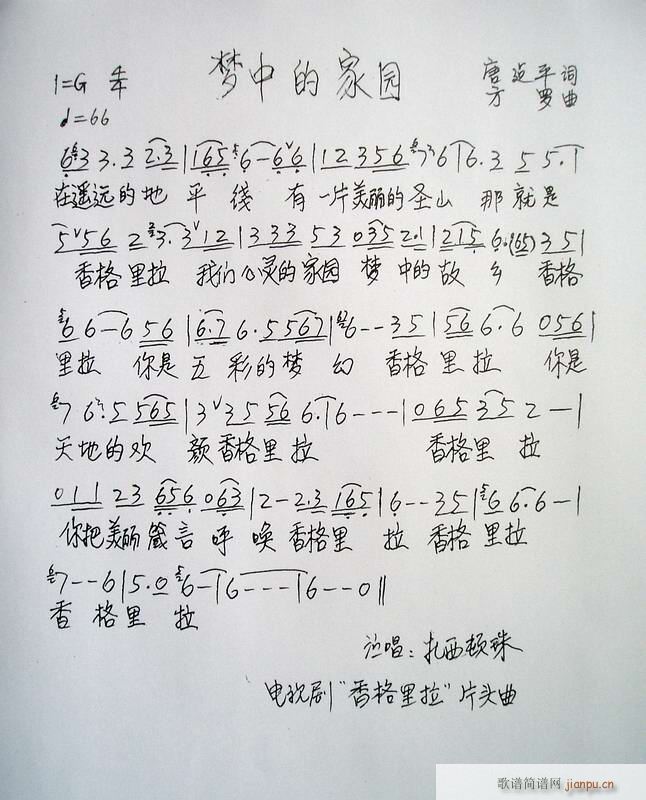 梦中的家园
1=G 4/4
唐远平 词
♩=66
方罗 曲
6 3 3. 3 2.3 | 1 6 5 6 - 6 ∨ 6 | 1 2 3 5 6 7 6 | 6. 3 5 5. 1
在遥远的地 平 线 有 一片美丽的圣山 那就是
5 ∨ 5 6 2 3. 3 ∨ 1 2 | 3 3 3 5 3 0 3 5 2.1 | 2 1 5 6. (6 5) 3 5 |
香格里拉 我们心灵的家园 梦 中的故 乡 香格
6 6 - 6 5 6 | 6.7 6. 5 5 6 7 | 6 - - 3 5 | 5 6 6. 6 0 5 6 |
里拉 你是 五 彩的梦 幻 香格里拉 你是
7 6. 5 5 6 5 | 3 ∨ 3 5 5 6 6. | 6 - - - | 0 6 5 3 5 2 - |
天地的欢 颜香格里拉 香格里 拉
0 1 1 2 3 6 5 6 0 6 3 | 2 - 2.3 1 6 5 | 6 - - 3 5 | 6 6. 6 - |
你把美丽箴言呼 唤 香格里 拉 香格里拉
7 - - 6 | 5. 0 6 - | 6 - - - | 6 - - 0 ‖
香 格里 拉
演唱：扎西顿珠
电视剧"香格里拉"片头曲
歌谱简谱网 jianpu.cn